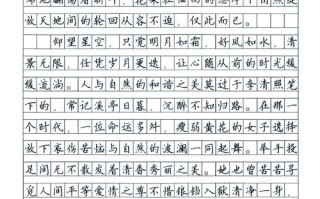 放天地间的轮回从容不迫，仅此而已。
仰望星空，只觉明月如霜，好风如水，清
景无限，任凭岁月更迭，让心随从前的时光缓
缓流淌。人与自然的和谐之美莫过于李清照笔
下的，常记溪亭日暮，沉醉不知归路。在那一
个时代，一位命运多舛，瘦弱黄花的女子选择
放下哀伤苦恼与自然的波澜一同起舞。举手投
足间无不散发着清香秀丽之美。她也曾苦苦寻
觅人间平等爱情之尊不惜锒铛入狱清净一身，